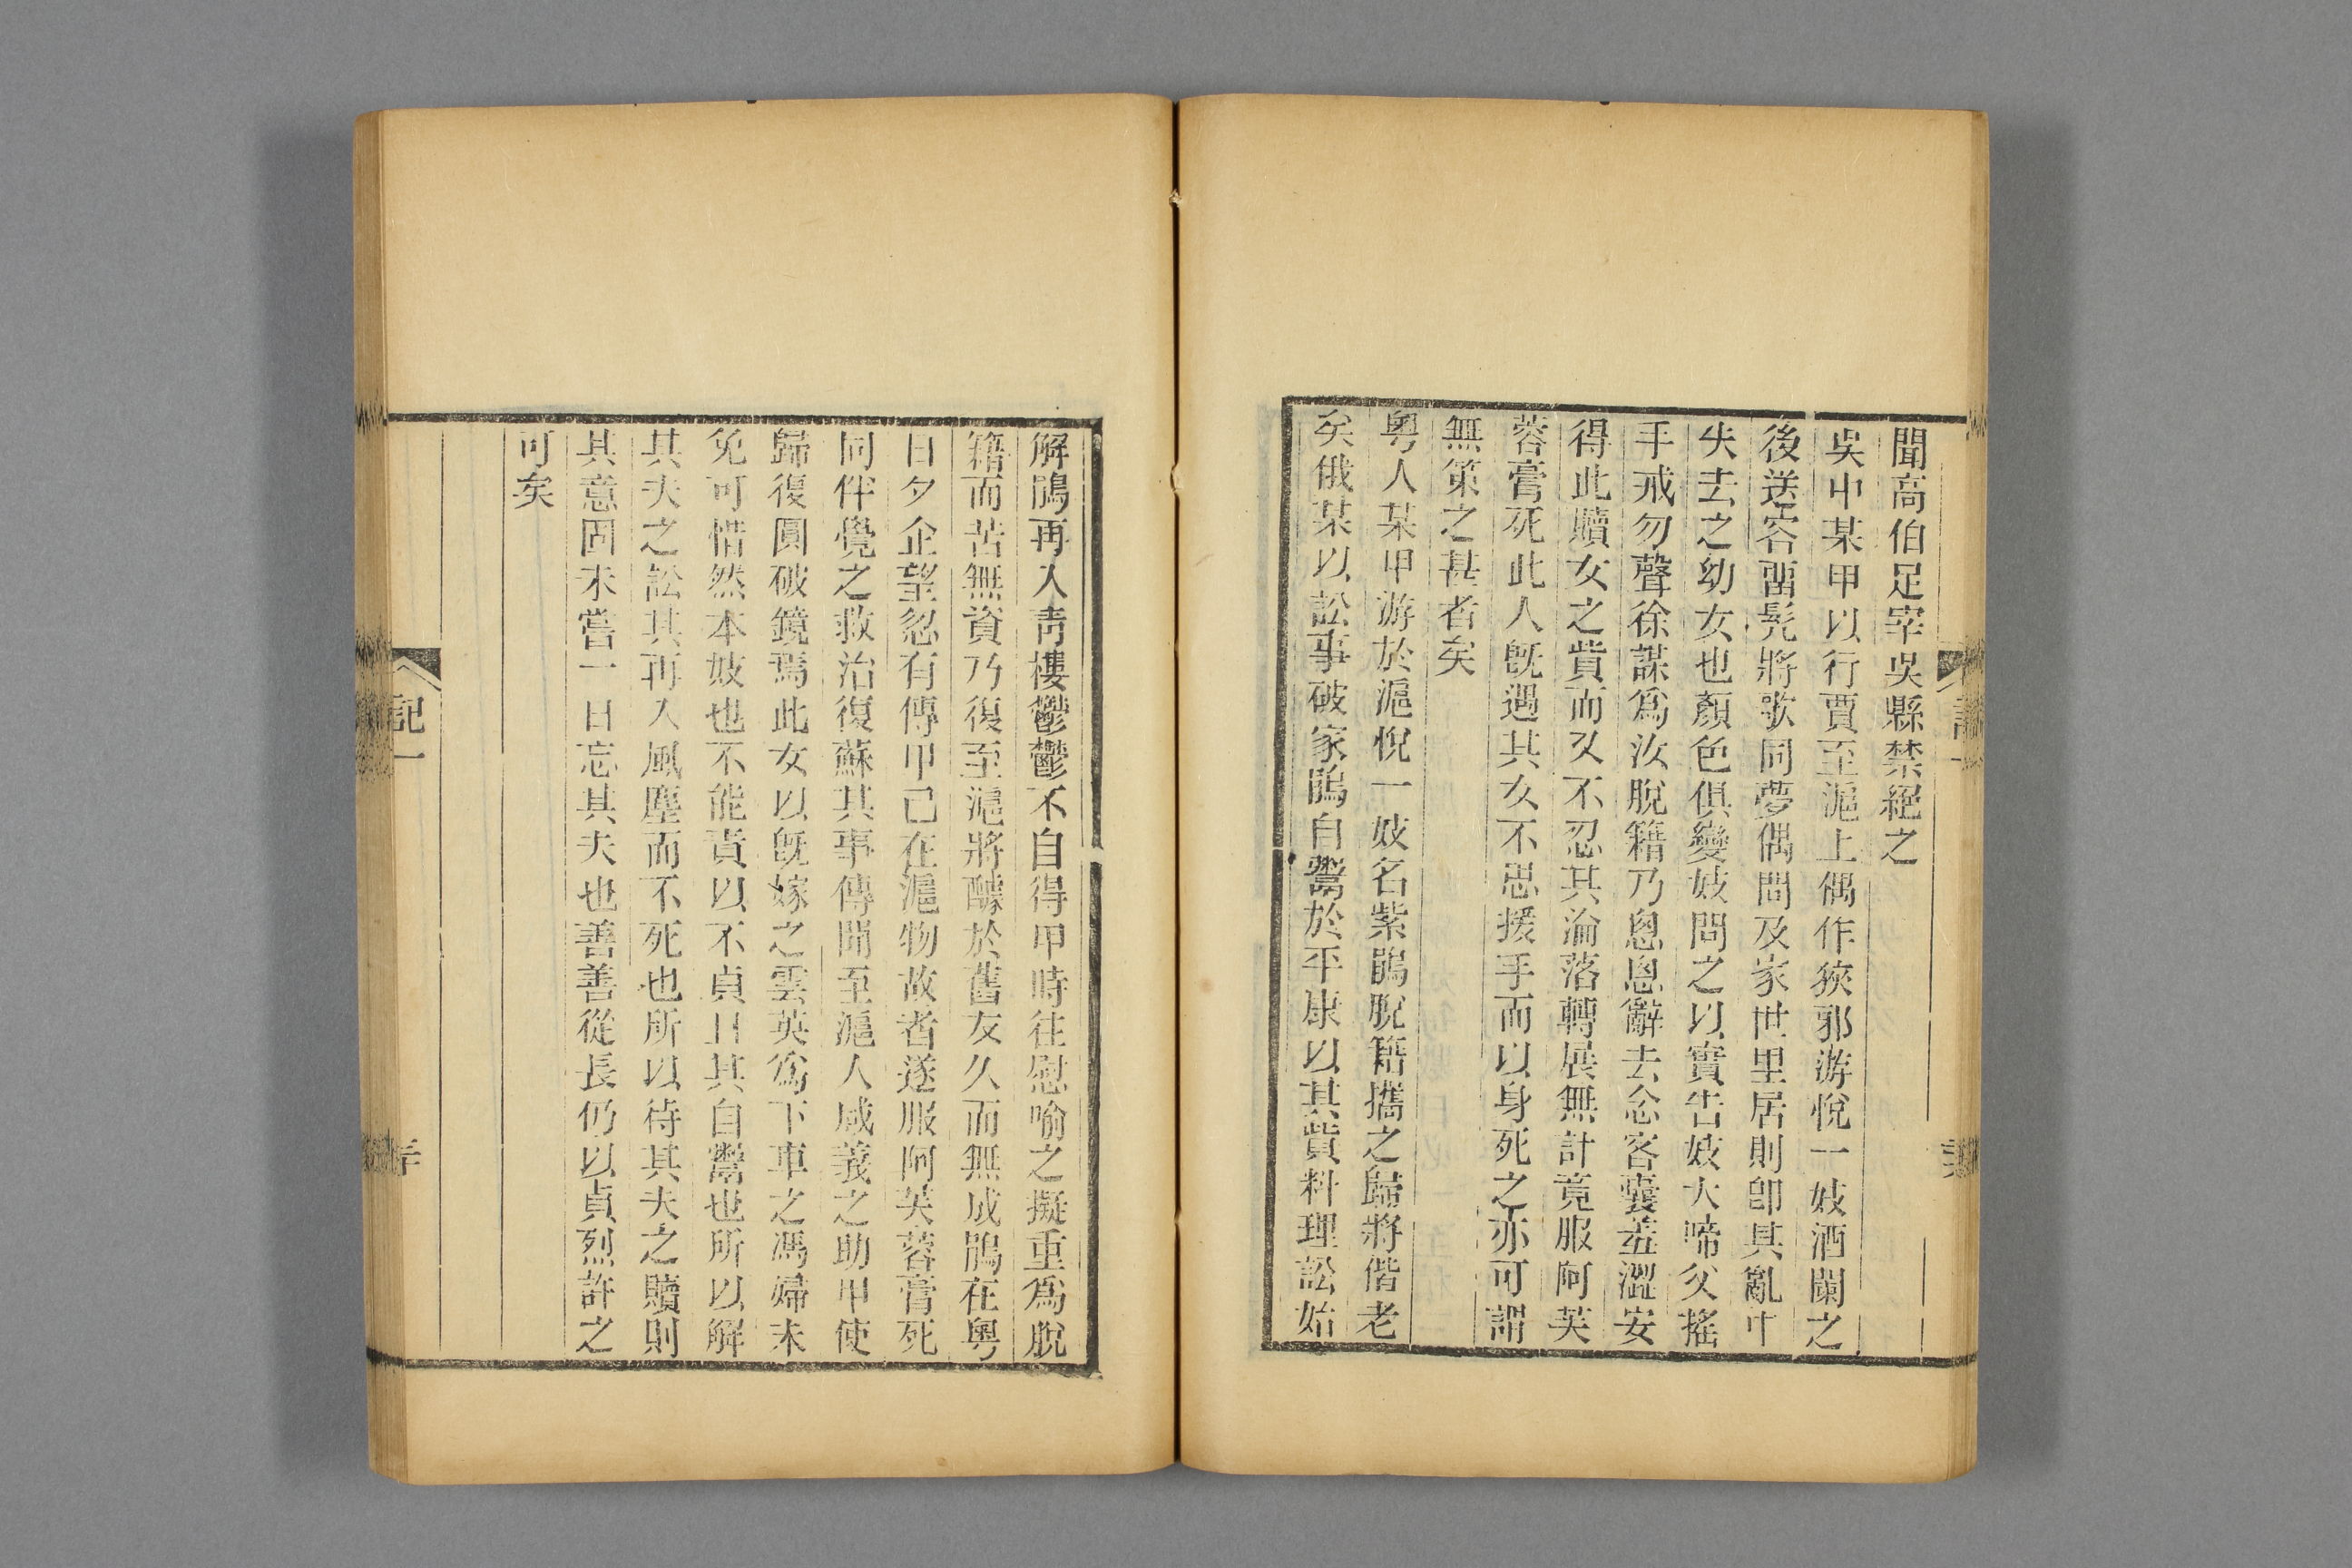 聞高伯足宰吳縣禁絕之
吳中某甲以行賈至滬上偶作狹邪游悅一妓酒闌之
後送客畱髡將歌同夢偶問及家世里居則卽其亂中
失去之幼女也顏色俱變妓問之以實告妓大啼父搖
手戒勿聲徐謀爲汝脫籍乃悤悤辭去念客囊羞澀安
得此贖女之貲而又不忍其淪落轉展無計竟服阿芙
蓉膏死此人旣遇其女不思援手而以身死之亦可謂
無策之甚者矣
粵人某甲游於滬悅一妓名紫鵑脫籍攜之歸將偕老
矣俄某以訟事破家鵑自鬻於平康以其貲料理訟始
解鵑再入靑樓鬱鬱不自得甲時往慰喻之擬重爲脫
籍而苦無資乃復至滬將醵於舊友久而無成鵑在粵
日夕企望忽有傳甲已在滬物故者遂服阿芙蓉膏死
同伴覺之救治復蘇其事傳聞至滬人感義之助甲使
歸復圓破鏡焉此女以旣嫁之雲英爲下車之馮婦未
免可惜然本妓也不能責以不貞且其自鬻也所以解
其夫之訟其再入風塵而不死也所以待其夫之贖則
其意固未嘗一日忘其夫也善善從長仍以貞烈許之
可矣
記一